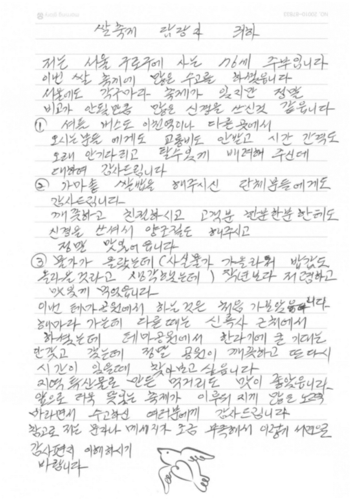 쌀축제 담당자 귀하
저는 서울 구로구에 사는 76세 주부입니다
이번 쌀 축제에 많은 수고를 하셨습니다
서울에도 각구마다 축제가 있지만 정말
비교가 안될만큼 많은 신경을 쓰신것 같습니다
① 셔틀 버스도 이천역이나 다른곳에서
오시는분들 에게도 교통비도 안받고 시간 간격도
오래 안기다리고 탈수있게 배려해 주신데
대하여 감사드립니다
② 가마솥 쌀밥을 해주시신 단체분들에게도
감사드립니다.
깨끗하고 친절하시고 고객분 한분한분 한테도
신경을 쓰셔서 양조절도 해주시고
정말 맛있어읍니다
③ 물가가 올랐는데 (사실물가 가올라 밥값도
올라을것라고 생각하였는데) 작년보다 저렴하고
맛있게 먹었습니다
이번 테마공원에서 하는것은 처음 가보았습니다
해마다 가는데 다른때는 신둔사 근처에서
하셨는데 테마공원에서 한다기에 큰 기대는
안갖고 갔는데 정말 공원이 깨끗하고 또다시
시간이 있을때 찾아보고 싶습니다
지역 특산물로 만든 먹거리도 맛이 좋았습니다
앞으로 더욱 뜻있는 축제가 이루어 지게 많은 노력
바라면서 수고하신 여러분께 감사드립니다
참고로 저는 문자나 메세지가 조금 부족해서 이렇게 서면으로
감사편지 이해하시기
바랍니다